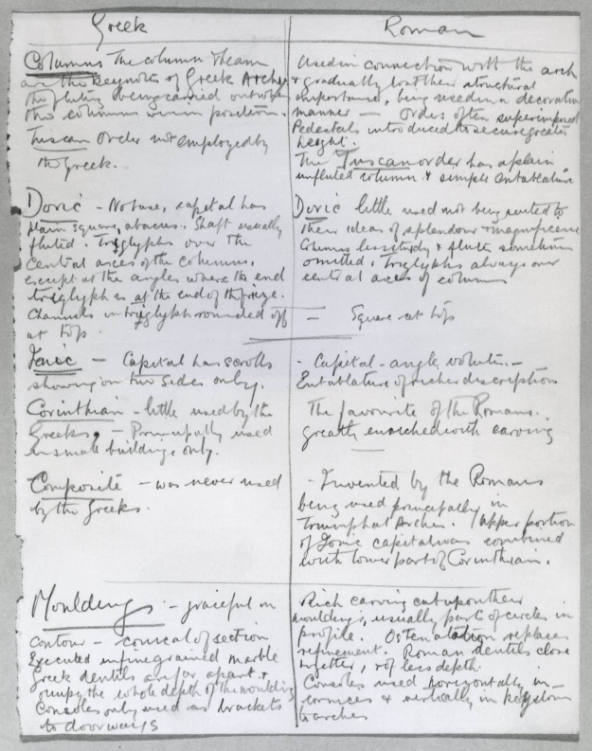 Greek
Columns The column & beam
are the keynotes of Greek Arch
the fluting being carried out when
the columns were in position.
Tuscan Order not employed by
the Greek.
Doric - No base, capital has
plain square abacus. Shaft usually
fluted. Triglyphs over the
central axes of the columns,
except at the angles where the end
triglyph is at the end of the frieze.
Channels in triglyph rounded off
at top.
Ionic - Capital has scrolls
showing on two sides only.
Corinthian - little used by the
Greeks, - Principally used
in small buildings only.
Composite - was never used
by the Greeks.
Mouldings - graceful in
contour - conical of section
Executed in fine grained marble
Greek dentils are far apart &
occupy the whole depth of the moulding
Consoles only used as brackets
to doorways
Roman
Used in connection with the arch
& gradually lost their structural
importance, being used in a decorative
manner - Orders often superimposed
Pedestals introduced to secure greater
height.
The Tuscan order has a plain
unfluted column & simple entablature
Doric little used not being suited to
their ideas of splendour & magnificence
Columns less sturdy & flutes sometimes
omitted. Triglyphs always over
central axes of columns
- Square at top
- Capital - angle volutes. -
Entablature of richer description
The favourite of the Romans.
greatly enriched with carving
- Invented by the Romans
being used principally in
Triumphal Arches. Upper portion
of Ionic capital was combined
with lower part of Corinthian.
Rich carving cut upon their
mouldings, usually part of circles in
profile. Ostentation replaces
refinement. Roman dentils close
together, & of less depth.
Consoles used horizontally in
cornices & vertically in keystones
to arches